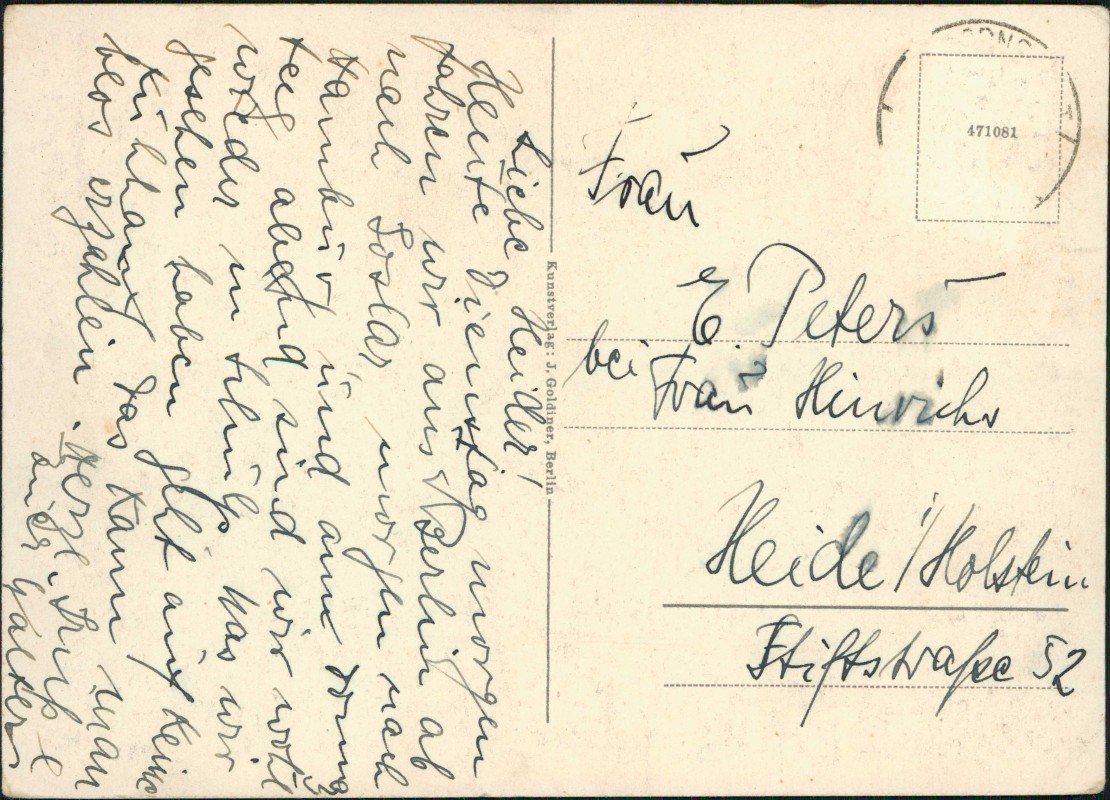 Liebe Heidler!
Heute Dienstag morgen
fahren wir aus Berlin ab
nach Goslar, morgen nach
Hamburg und am Donners
tag abend sind wir wohl
wieder in Schülp. Was wir
gesehen haben geht auf keine
Kuhhaut, das kann man
blos erzählen. Herzl. Grüße
euer Walter
Kunstverlag: J. Goldiner, Berlin
471081
Frau
E. Peters
bei Frau Hinrichs
Heide i/Holstein
Stiftstraße 52